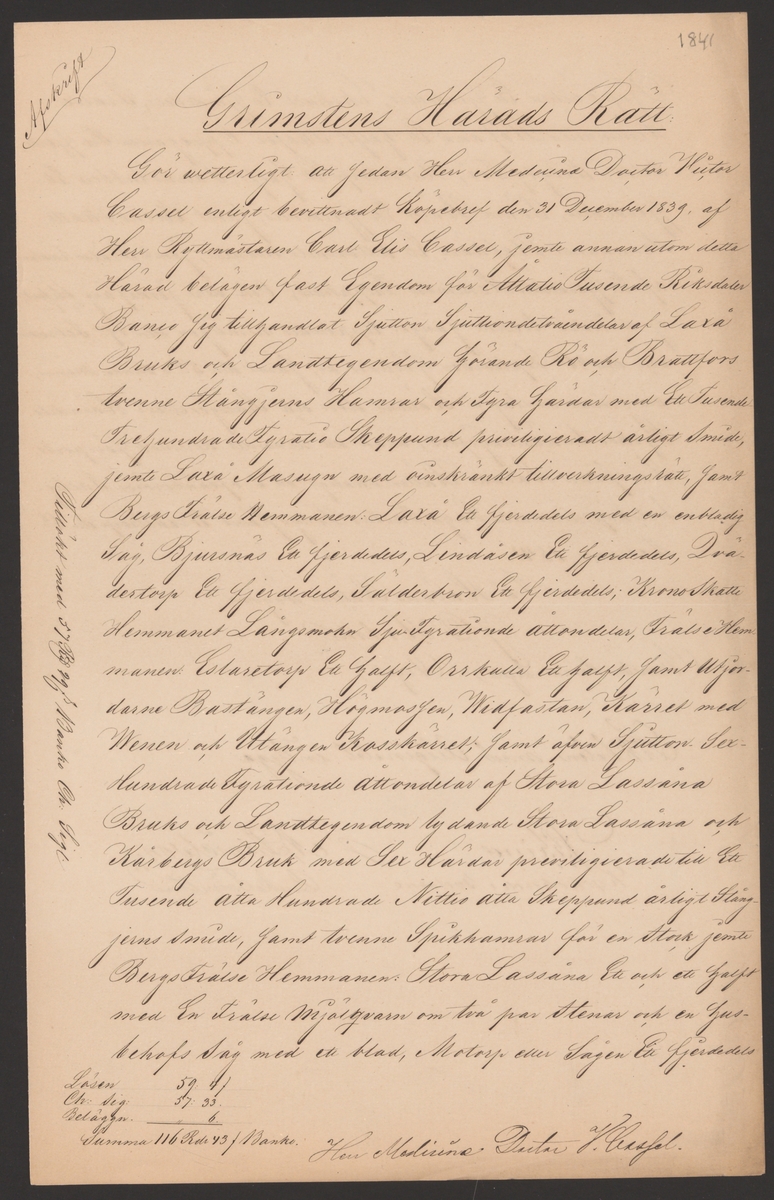 1841
Afskrift
Grimstens Härads Rätt:
Gör wetterligt att sedan Herr Medicinæ Doctor Victor
Cassel enligt bevittnadt Köpebref den 31 December 1839, af
Herr Ryttmästaren Carl Elis Cassel, jemte annan utom detta
Härad belägen fast Egendom för Åttatio Tusende Riksdaler
Banco sig tillhandlat Sjutton Sjuttiondetvåendelar af Laxå
Bruks och Landtegendom hörande Rö och Brattfors
tvenne Stångjerns Hamrar och Fyra härdar med Ett Tusende
Trehundrade Fyratio Skeppund priviligieradt årligt Smide,
jemte Laxå Masugn med oinskränkt tillverkningsrätt, samt
Bergs Frälse Hemmanen: Laxå Ett fjerdedels med en enbladig
Såg, Bjursnäs Ett fjerdedels, Lindåsen Ett fjerdedels, Två-
dertorp Ett fjerdedels, Sälderbron Ett fjerdedels; Krono Skatte
Hemmanet Långsmohn Sju Fyrationde åttondelar, Frälse Hem-
manen: Estaretorp Ett halft, Orrkulla Ett halft, samt Utjor-
darne Bastängen, Högmossen, Widfastan, Kärret med
Wenen och Utängen Kosskärret; samt äfven Sjutton Sex-
Hundrade Fyrationde åttondelar af Stora Lassåna
Bruks och Landtegendom lydande Stora Lassåna och
Kårbergs Bruk med Sex Härdar previligierade till Ett
Tusende åtta Hundrade Nittio åtta Skeppund årligt Stång-
jerns smide, samt tvenne Spikhamrar för en Stock jemte
Bergs Frälse Hemmanen: Stora Lassåna Ett och ett halft
med En Frälse Mjölqvarn om två par Stenar och en hus-
behofs Såg med ett blad, Motorp eller Sågen Ett fjerdedels
Tillökt med 57 Rdr 29 s Banko Ch: Sigl
Lösen 59: 4 s
Ch: Sig: 57: 33.
Beläggn. „ 6.
Summa 116 Rdr 43 s Banko.
Herr Medicinæ Doctor V. Cassel.